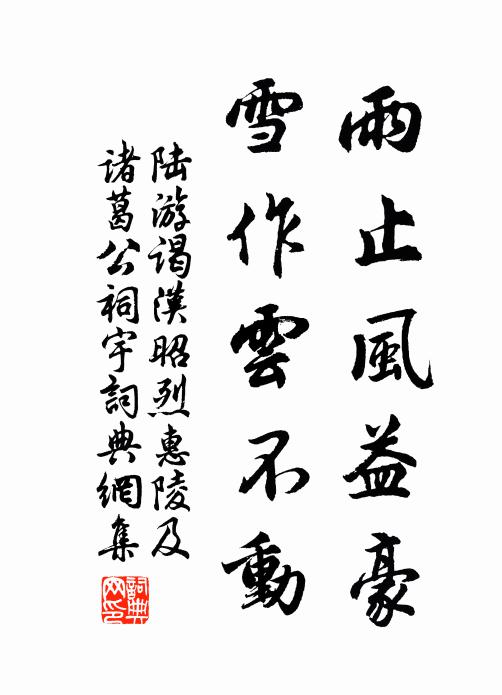 雨止風益豪
雪作雲不動
陆游谒漢昭烈惠陵及
诸葛公祠宇詞典網集